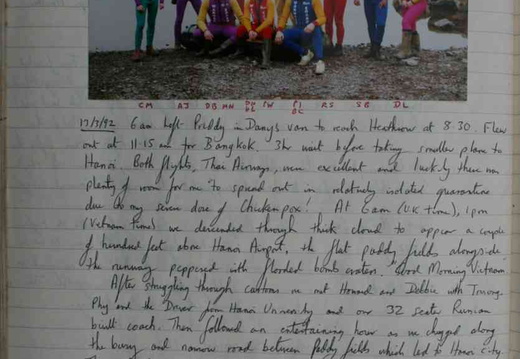 CM AJ DB MH DM PW PI RS SB DL
DL BC
17/7/92 6am left Priddy in Dany's van to reach Heathrow at 8.30. Flew
out at 11.15 am for Bangkok. 3hr wait before taking smaller plane to
Hanoi. Both flights, Thai Airways, were excellent and luckily there was
plenty of room for me to spread out in relatively isolated quarantine
due to my severe dose of Chickenpox! At 6am (UK time), 1pm
(Vietnam time) we descended through thick cloud to appear a couple
of hundred feet above Hanoi Airport, the flat paddy fields alongside
the runway peppered with flooded bomb craters. 'Good Morning Vietnam'
After struggling through customs we met Howard and Debbie with
Phy and the Driver from Hanoi University and our 32 seater Russian
built coach. Then followed an entertaining hour as we chugged along
the busy and narrow road between paddy fields which led to Hanoi city.